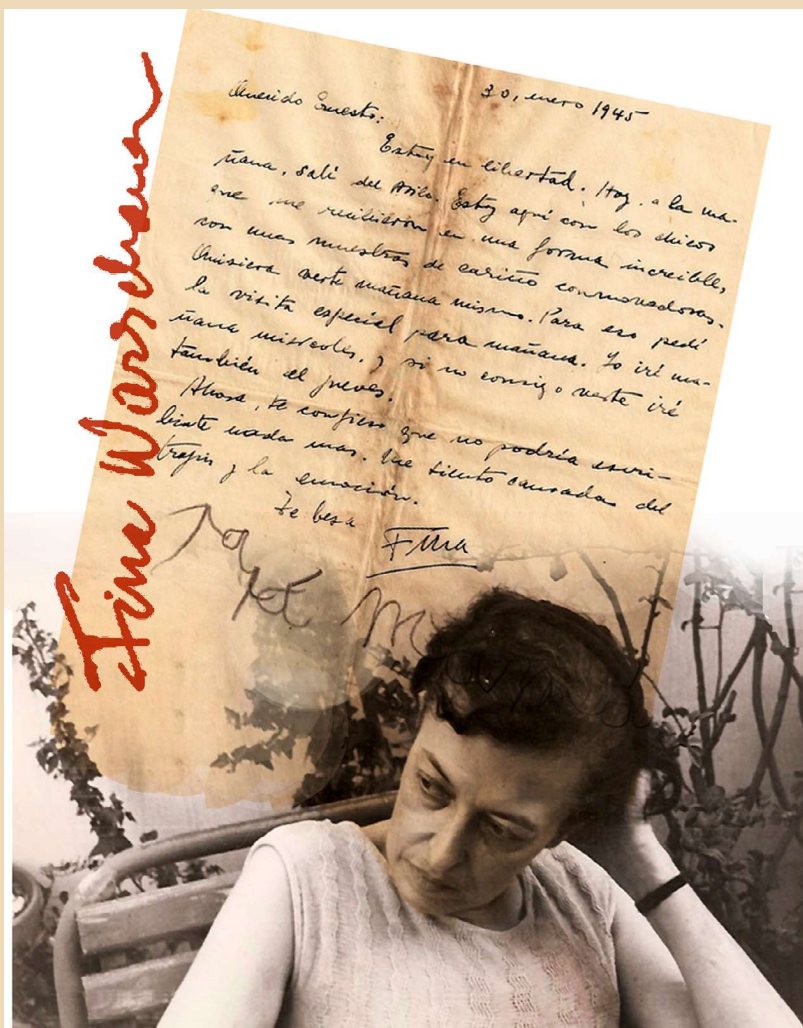 Fina Warschaver
30, enero 1945
Querido Ernesto:
Estoy en libertad. Hoy, a la ma-
ñana, salí del Asilo. Estoy aquí con los chicos
que me recibieron en una forma increíble,
con unas muestras de cariño conmovedoras.
Quisiera verte mañana mismo. Para eso pedí
la visita especial para mañana. Yo iré ma-
ñana miércoles, y si no consigo verte iré
también el jueves.
Ahora, te confieso que no podría escri-
birte nada mas. Me siento cansada del
trajín y la emoción.
Te besa
Fina